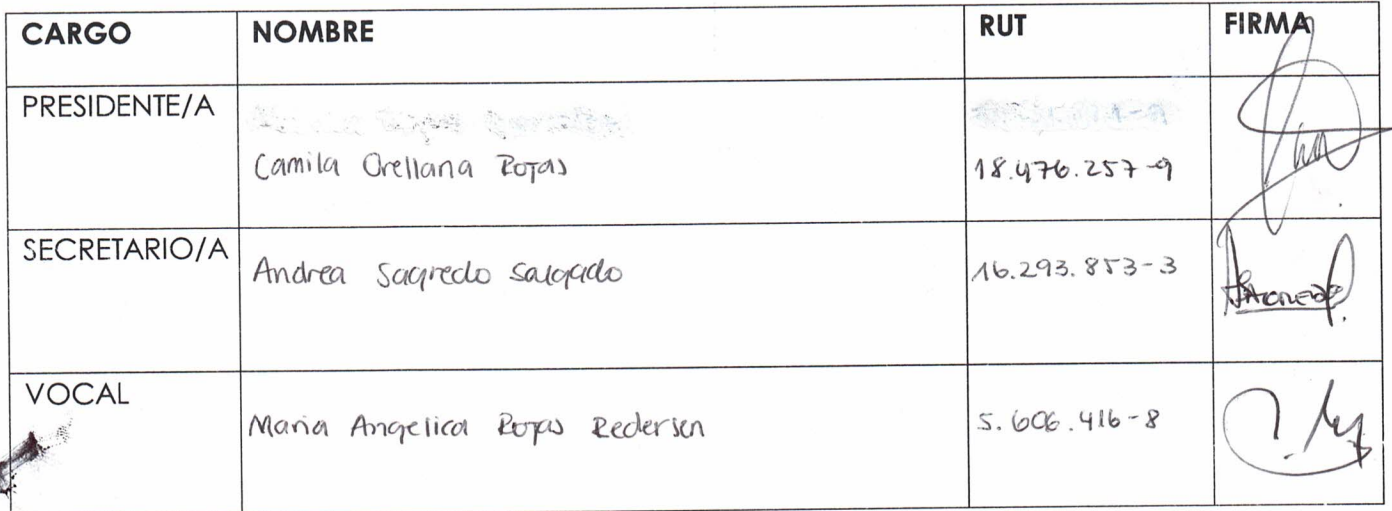 CARGO NOMBRE RUT FIRMA
PRESIDENTE/A
Camila Orellana Rojas 18.476.257-9
SECRETARIO/A
Andrea Sagredo Salgado 16.293.853-3
VOCAL
Maria Angelica Rojas Redersen 5.606.416-8